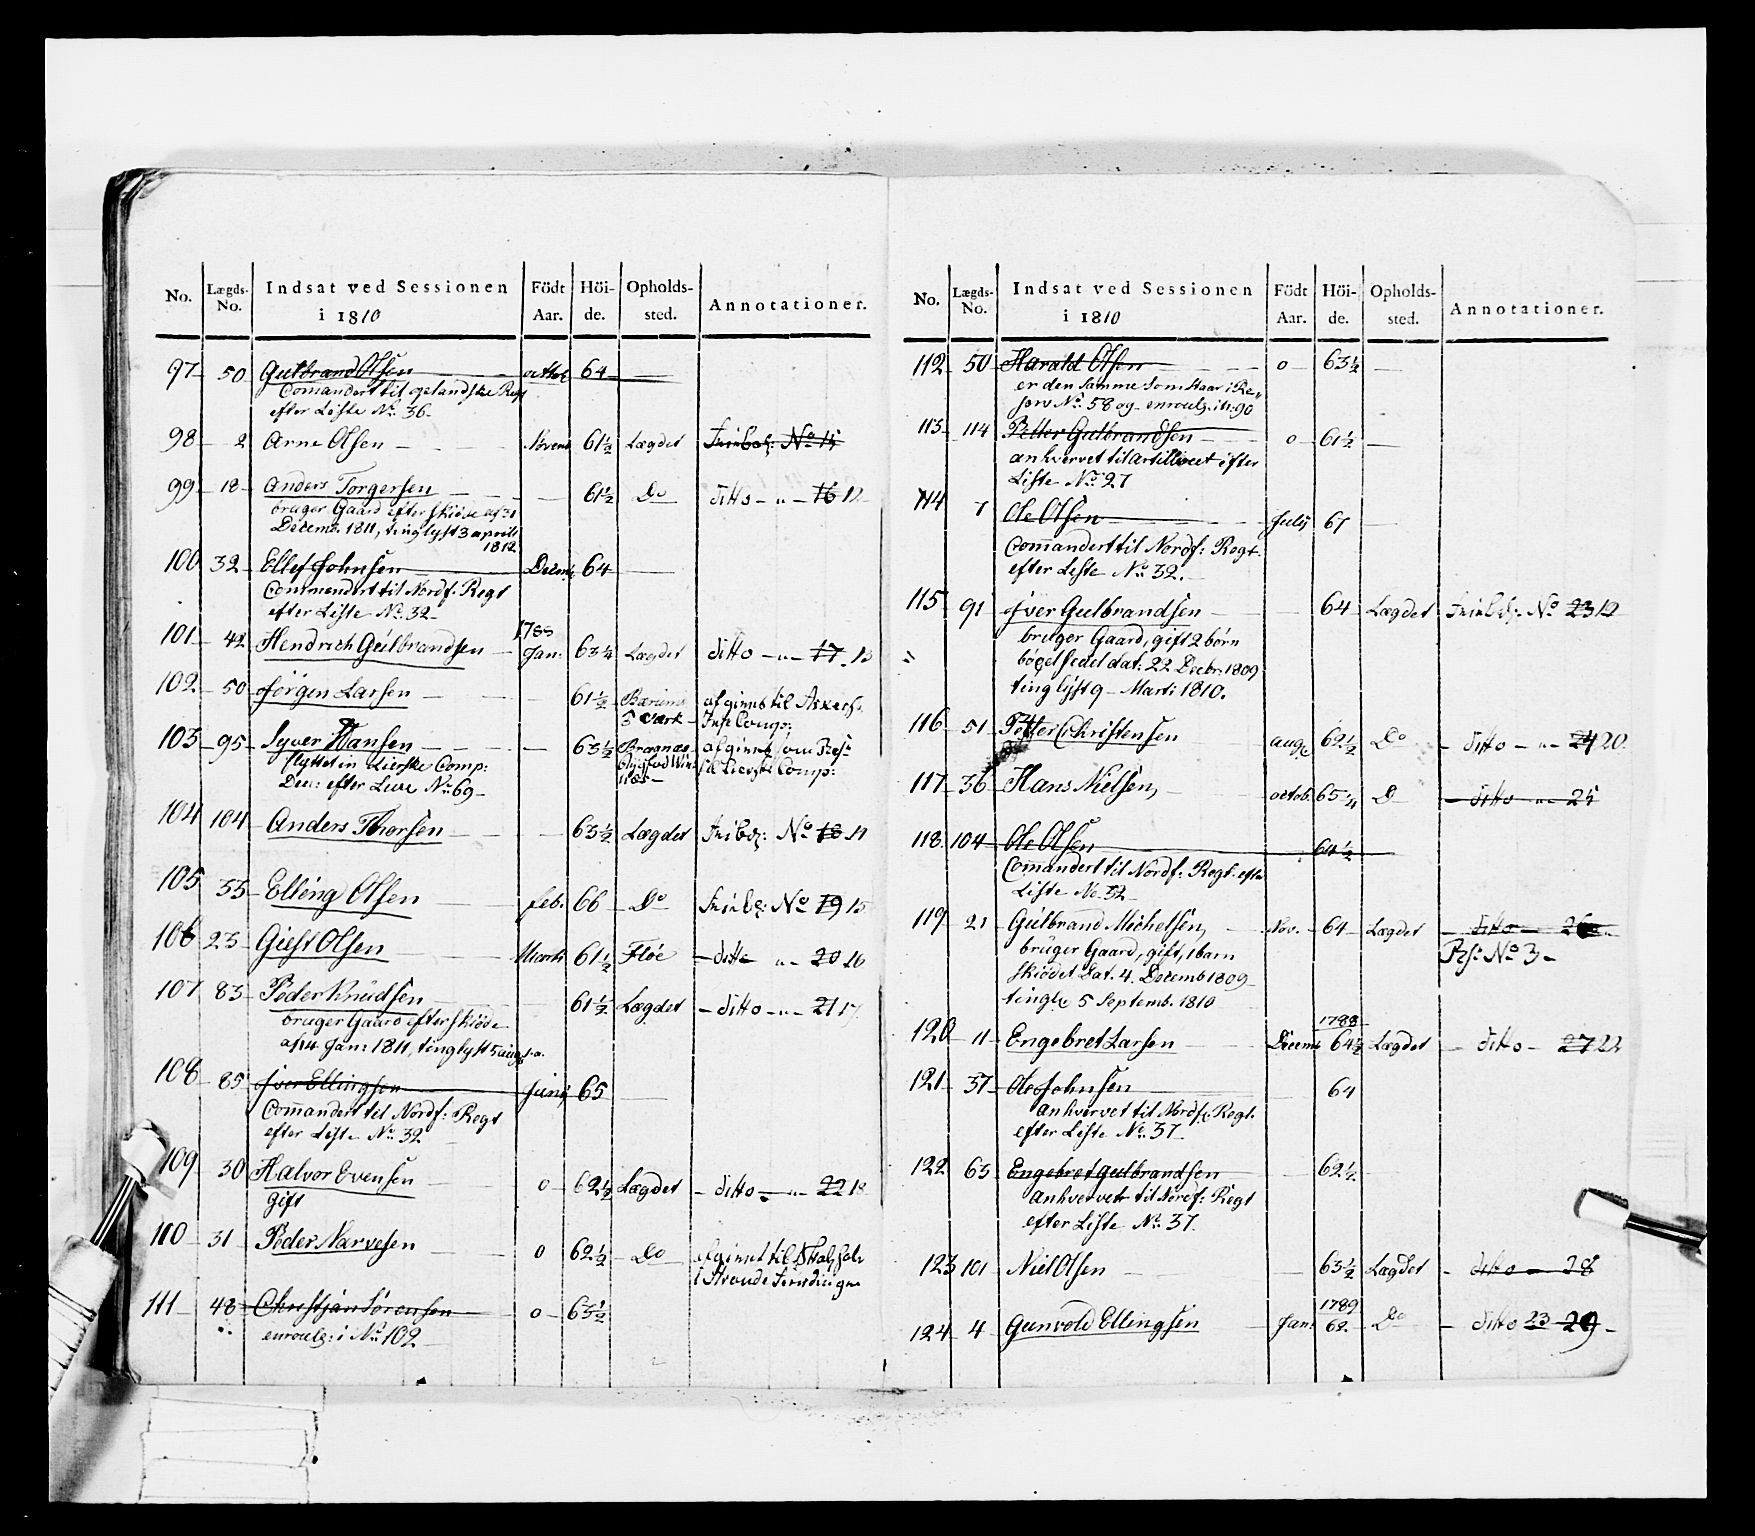 No. Lægds-No. Indsat ved Sessionen i 1810 Födt Aar. Höide. Opholdssted. Annotationer.
97 50 Gulbrand Olsen octbr 64
Comandert til opelandske Regt
efter Liste No. 36
98 2 Arne Olsen Novem 61½ Lægdet No 15
99 18 Anders Torgersen 61½ Do ditto 16 12
bruger Gaard efter skiøde af 31
Decemb. 1811, tinglyst 3 april
1812
100 32 Ellef Johnsen Decemb 64
Commandert til Nordf. Regt
efter Liste No. 32
101 42 Hendrich Gulbrandsen 1788 Jan: 63¼ Lægdet ditto 17 13
102 50 Jørgen Larsen 61½ Bærums Værk afginnet til Askers
103 95 Syver Hansen 63½ afginnet som
flyttet in Lierske Comp:
efter No. 69
104 104 Anders Thorsen 63½ Lægdet No 18 14
105 33 Elling Olsen feb. 66 Do No 19 15
106 23 Giest Olsen Marti 61½ Floe ditto 20 16
107 83 Peder Knudsen 61½ Lægdet ditto 21 17
bruger Gaard efter skiøde
af 14 Jan: 1811, tinglyst 5 aug. s.a.
108 85 Iver Ellingsen Junij 65
Commandert til Nordf: Regt
efter Liste No. 32
109 30 Halvor Evensen o 62½ Lægdet ditto 22 18
gift
110 31 Peder Narvesen o 62½ Do afginnet til
111 48 Christian Sørensen o 63½
enroulg: i No. 102
No. Lægds-No. Indsat ved Sessionen i 1810 Födt Aar. Höide. Opholdssted. Annotationer.
112 50 Harald Olsen o 63½
er den samme som staar i Re-
serv No. 58 og enroulg. i No. 90
113 114 Petter Gulbrandsen o 61½
anhvervet til artilleriet efter
Liste No. 27
114 7 Ole Olsen July 61
Commandert til Nordf: Regt
efter Liste No. 32.
115 91 Iver Gulbrandsen 64 Lægdet No 23 19
bruger Gaard, gift 2 børn
bøxelsedel dat: 22 Decbr. 1809
tinglyst 9 Marti 1810.
116 51 Petter Christensen aug. 62½ Do ditto 24 20
117 36 Hans Nielsen, octob. 65¼ D ditto 25
118. 104 Ole Olsen 64½
Commandert til Nordf: Regt. efter
Liste No. 32
119 21 Gulbrand Michelsen, Nov. 64 Lægdet ditto 26
bruger Gaard, gift, 1 barn No 3
skiødet dat. 4. Decemb 1809
tingl. 5 Septemb. 1810
120 11 Engebret Larsen Decemb 1788 64½ Lægdet ditto 27 22
121 37 Ole Johnsen 64
anhvervet til Nordf. Regt.
efter Liste No. 37
122 63 Engebret Gulbrandsen 62½
anhvervet til Nordf: Regt
efter Liste No. 37.
123 101 Niel Olsen 63½ Lægdet ditto 28
124 4 Gunvold Ellingsen Jan: 1789 62. Do ditto 23 29